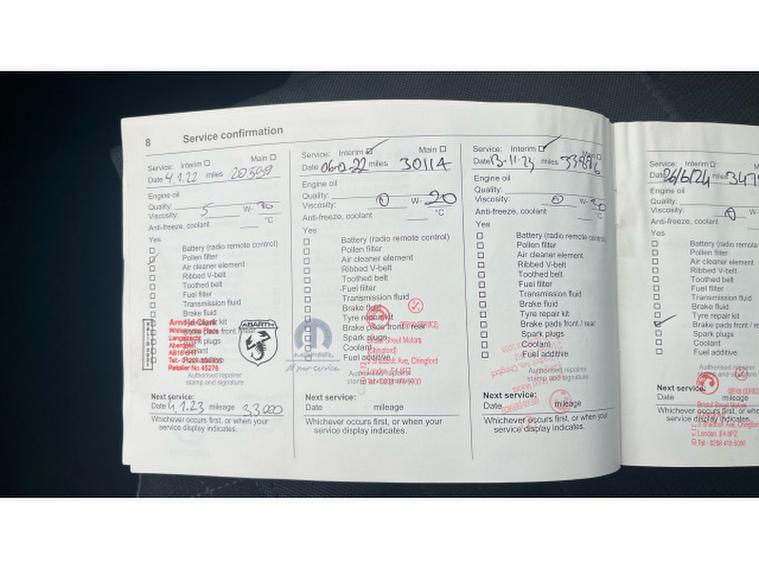 8 Service confirmation
Service: Interim Main
Date 4.1.22 miles
Engine oil
Quality:
Viscosity: 5 W- 30
Anti-freeze, coolant °C
Yes
Battery (radio remote control)
Pollen filter
Air cleaner element
Ribbed V-belt
Toothed belt
Fuel filter
Transmission fluid
Brake fluid
Tyre repair kit
Brake pads front / rear
Spark plugs
Coolant
Arnold Clark
Aberdeen
Retailer No 45276
ABARTH
Authorised repairer
stamp and signature
Next service:
Date 4.1.23 mileage 33000
Whichever occurs first, or when your
service display indicates.
Service: Interim Main
Date miles 30114
Engine oil
Quality:
Viscosity: 0 W- 20
Anti-freeze, coolant °C
Yes
Battery (radio remote control)
Pollen filter
Air cleaner element
Ribbed V-belt
Toothed belt
Fuel filter
Transmission fluid
Brake fluid
Tyre repair kit
Brake pads front / rear
Spark plugs
Coolant
Fuel additive
MOPAR
at your service
Bristol Street Motors
(Chingford)
London. E4 8PZ
Authorised repairer
stamp and signature
Next service:
Date mileage
Whichever occurs first, or when your
service display indicates.
Service: Interim Main
Date 13.11.23 miles
Engine oil
Quality:
Viscosity: 0 W-
Anti-freeze, coolant °C
Yes
Battery (radio remote control)
Pollen filter
Air cleaner element
Ribbed V-belt
Toothed belt
Fuel filter
Transmission fluid
Brake fluid
Tyre repair kit
Brake pads front / rear
Spark plugs
Coolant
Fuel additive
Authorised repairer
stamp and signature
Next service:
Date mileage
Whichever occurs first, or when your
service display indicates.
Service: Interim
Date 26/6/24 miles
Engine oil
Quality:
Viscosity: 0
Anti-freeze, coolant
Yes
Battery (radio remote
Pollen filter
Air cleaner element
Ribbed V-belt
Toothed belt
Fuel filter
Transmission fluid
Brake fluid
Tyre repair kit
Brake pads front /
Spark plugs
Coolant
Fuel additive
Authorised
stamp and
Next service:
Date mileage
Bristol Street Motors
London. E4 8PZ
Whichever occurs first, or
service display indicates.